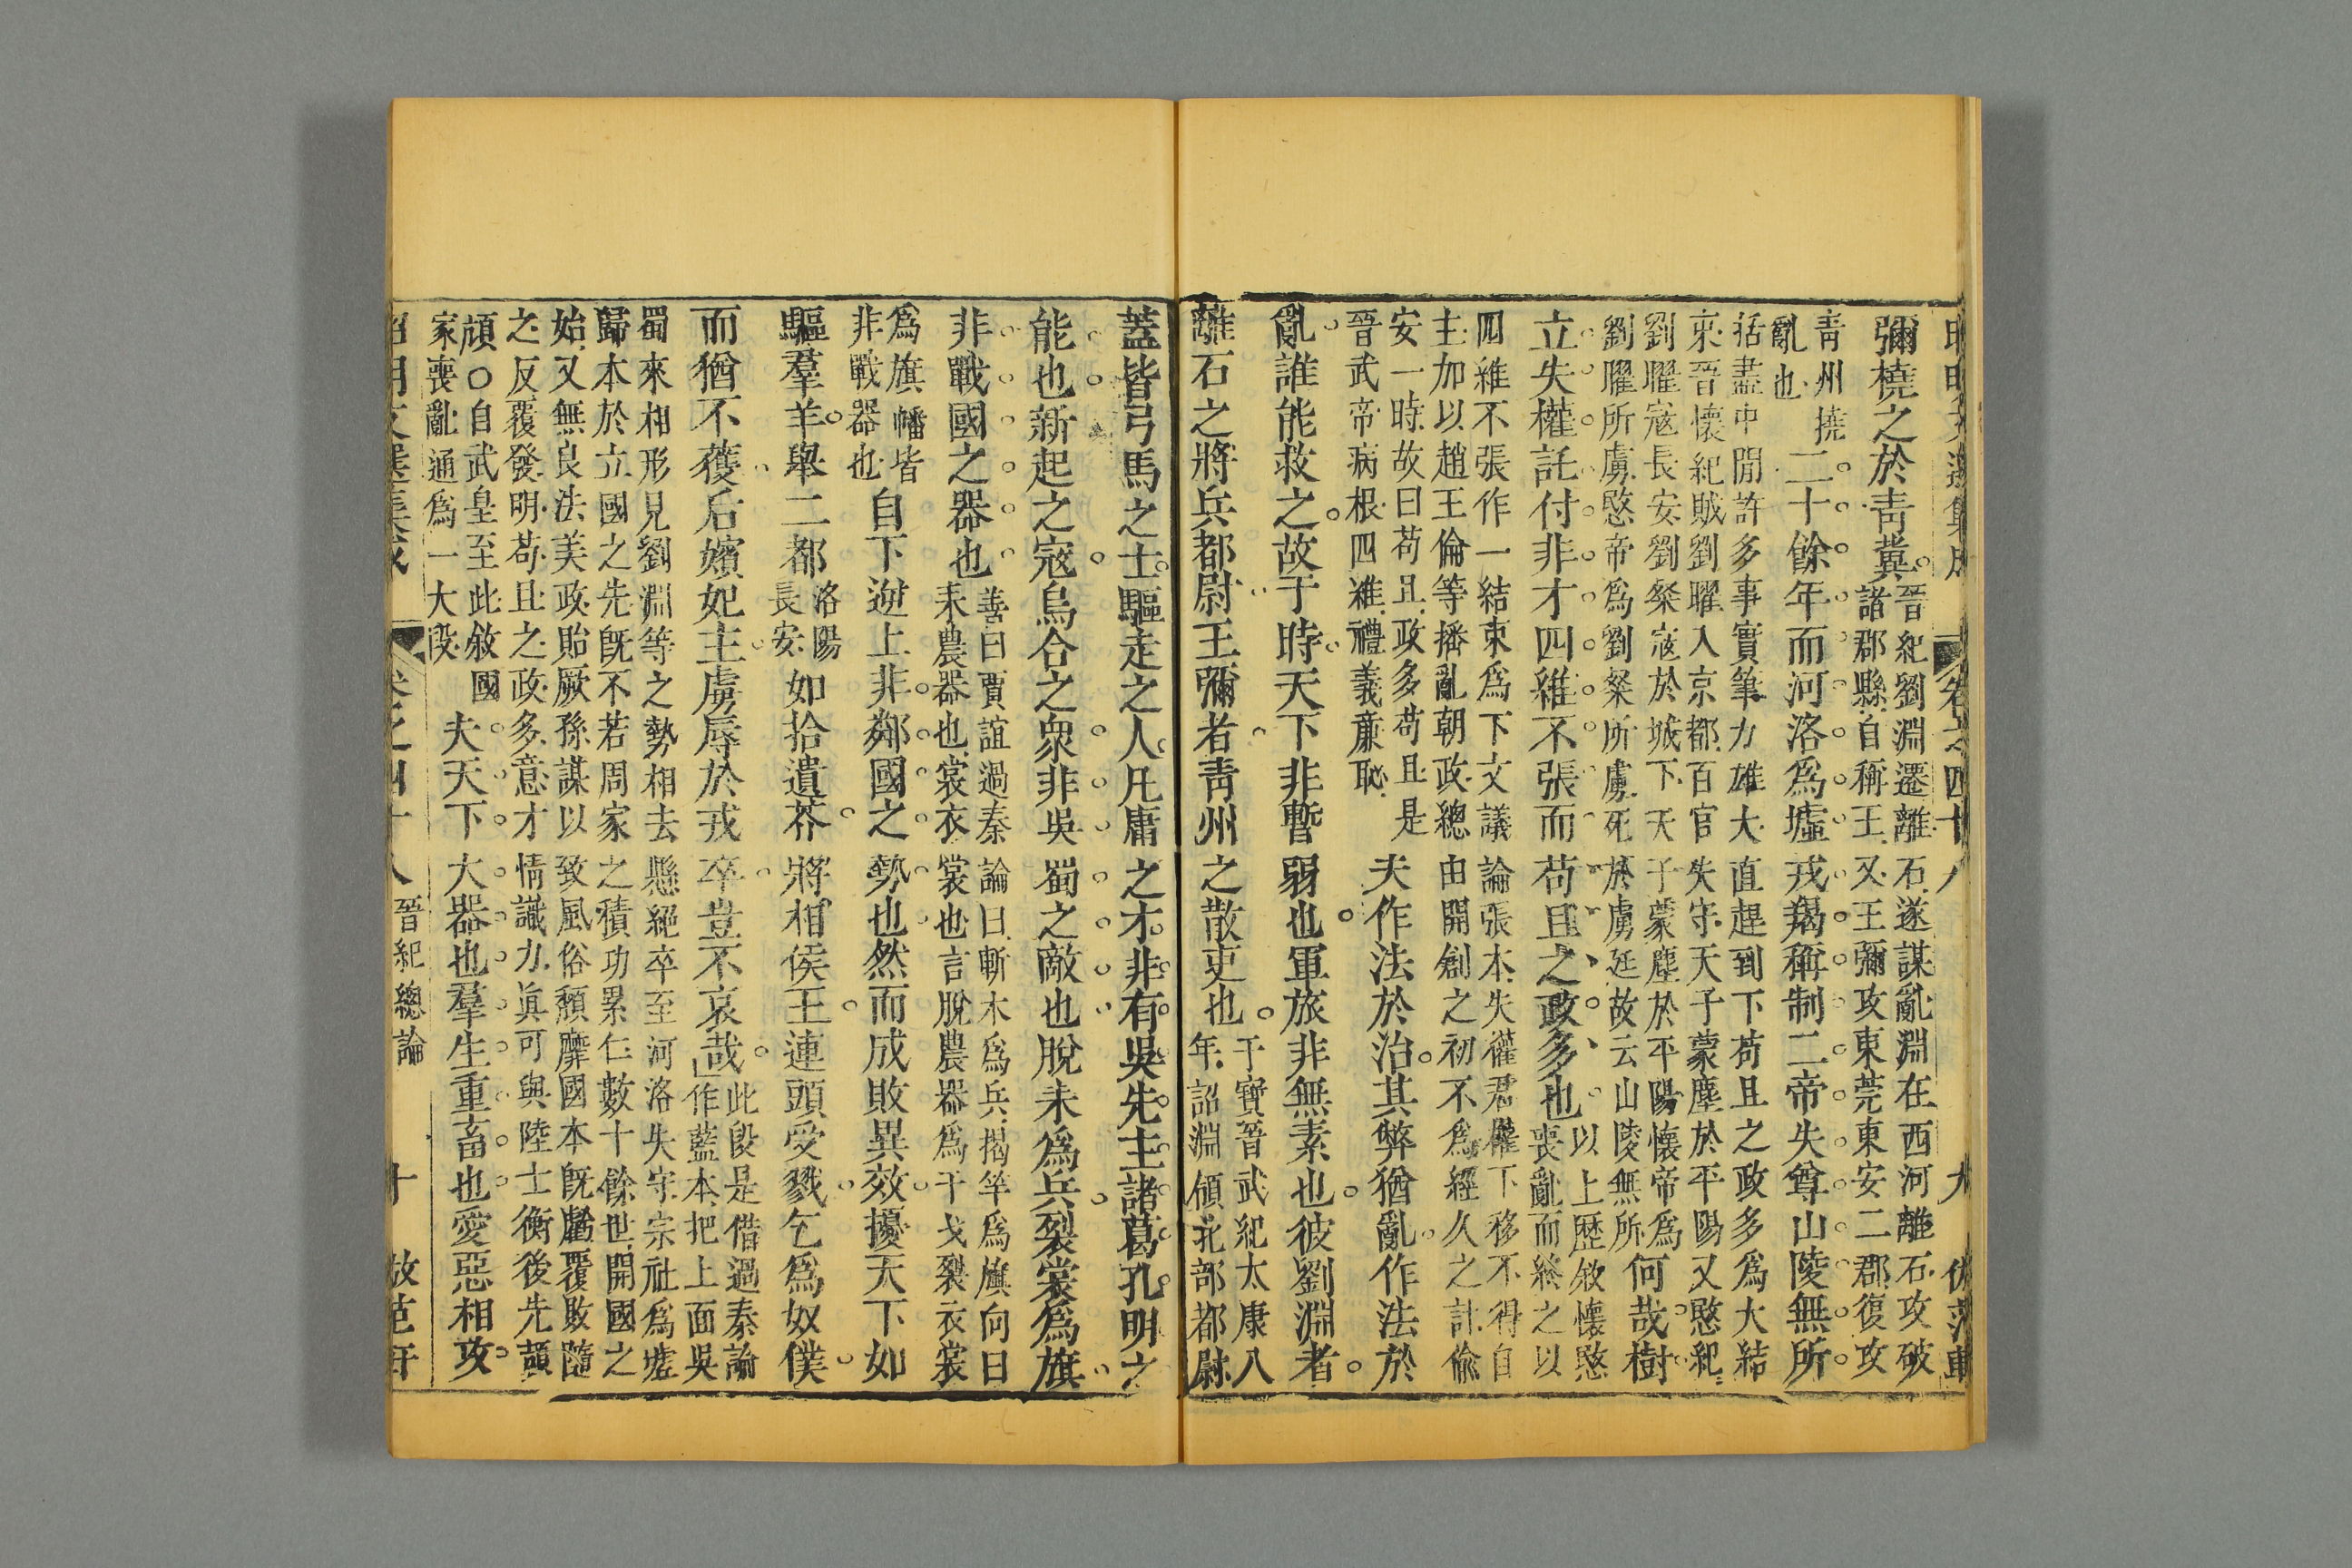 彌橈之於青冀晉紀劉淵遷離石遂謀亂淵在西河離石攻破諸郡縣自稱王又王彌攻東莞東安二郡復攻
青州撓亂也二十餘年而河洛爲墟戎羯稱制二帝失尊山陵無所
括盡中閒許多事實筆力雄大直趕到下苟且之政多爲大結束晉懷紀賊劉曜入京都百官失守天子蒙塵於平陽又愍紀
劉曜寇長安劉粲寇於城下天子蒙塵於平陽懷帝爲劉曜所虜愍帝爲劉粲所虜死於虜廷故云山陵無所何哉樹
立失權託付非才四維不張而苟且之政多也以上歷敘懷愍喪亂而終之以
四維不張作一結束爲下文議論張本失權君權下移不得自主加以趙王倫等播亂朝政總由開創之初不爲經久之計偸
安一時故曰苟且政多苟且是晉武帝病根四維禮義廉恥夫作法於治其弊猶亂作法於
亂誰能救之故于時天下非暫弱也軍旅非無素也彼劉淵者
離石之將兵都尉王彌者青州之散吏也干寶晉武紀太康八年詔淵領北部都尉
蓋皆弓馬之士驅走之人凡庸之才非有吳先主諸葛孔明之
能也新起之寇烏合之衆非吳蜀之敵也脫耒爲兵裂裳爲旗
非戰國之器也善曰賈誼過秦論曰斬木爲兵揭竿爲旗向曰耒農器也裳衣裳也言脫農器爲干戈裂衣裳
爲旗幡皆非戰器也自下逆上非鄰國之勢也然而成敗異效擾天下如
驅羣羊舉二都洛陽長安如拾遺芥將相侯王連頭受戮乞爲奴僕
而猶不獲后嬪妃主虜辱於戎卒豈不哀哉此段是借過秦論作藍本把上面吳
蜀來相形見劉淵等之勢相去懸絕卒至河洛失守宗社爲墟歸本於立國之先既不若周家之積功累仁數十餘世開國之
始又無良法美政貽厥孫謀以致風俗頹靡國本既虧覆敗隨之反覆發明苟且之政多意才情識力眞可與陸士衡後先頡
頏○自武皇至此敘國家喪亂通爲一大段夫天下大器也羣生重畜也愛惡相攻
晉紀總論
十